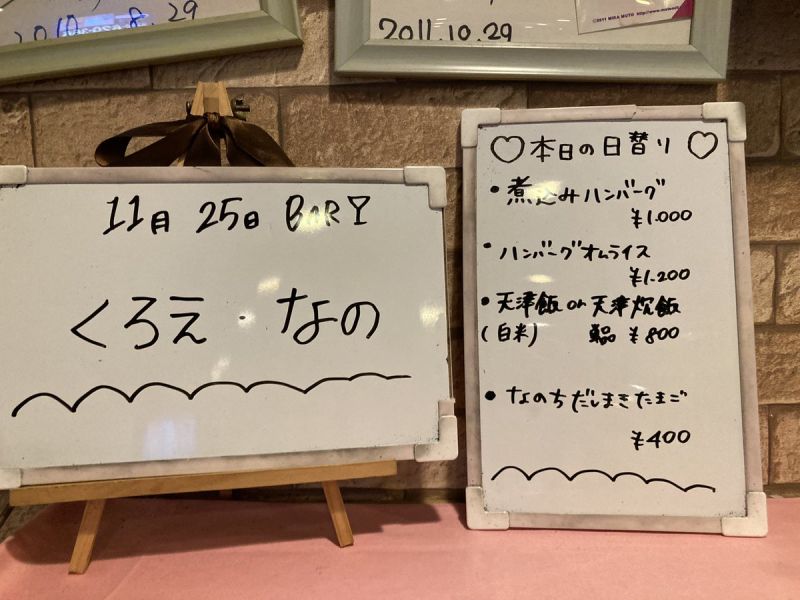 2010.8.29
2011.10.29
©2011 MIRA MUTO
11月 25日 BARY
くろえ・なの
♡本日の日替り♡
・煮込みハンバーグ
¥1.000
・ハンバーグオムライス
¥1.200
・天津飯 or 天津炊飯
(白米) 単品 ¥800
・なのちだしまきたまご
¥400